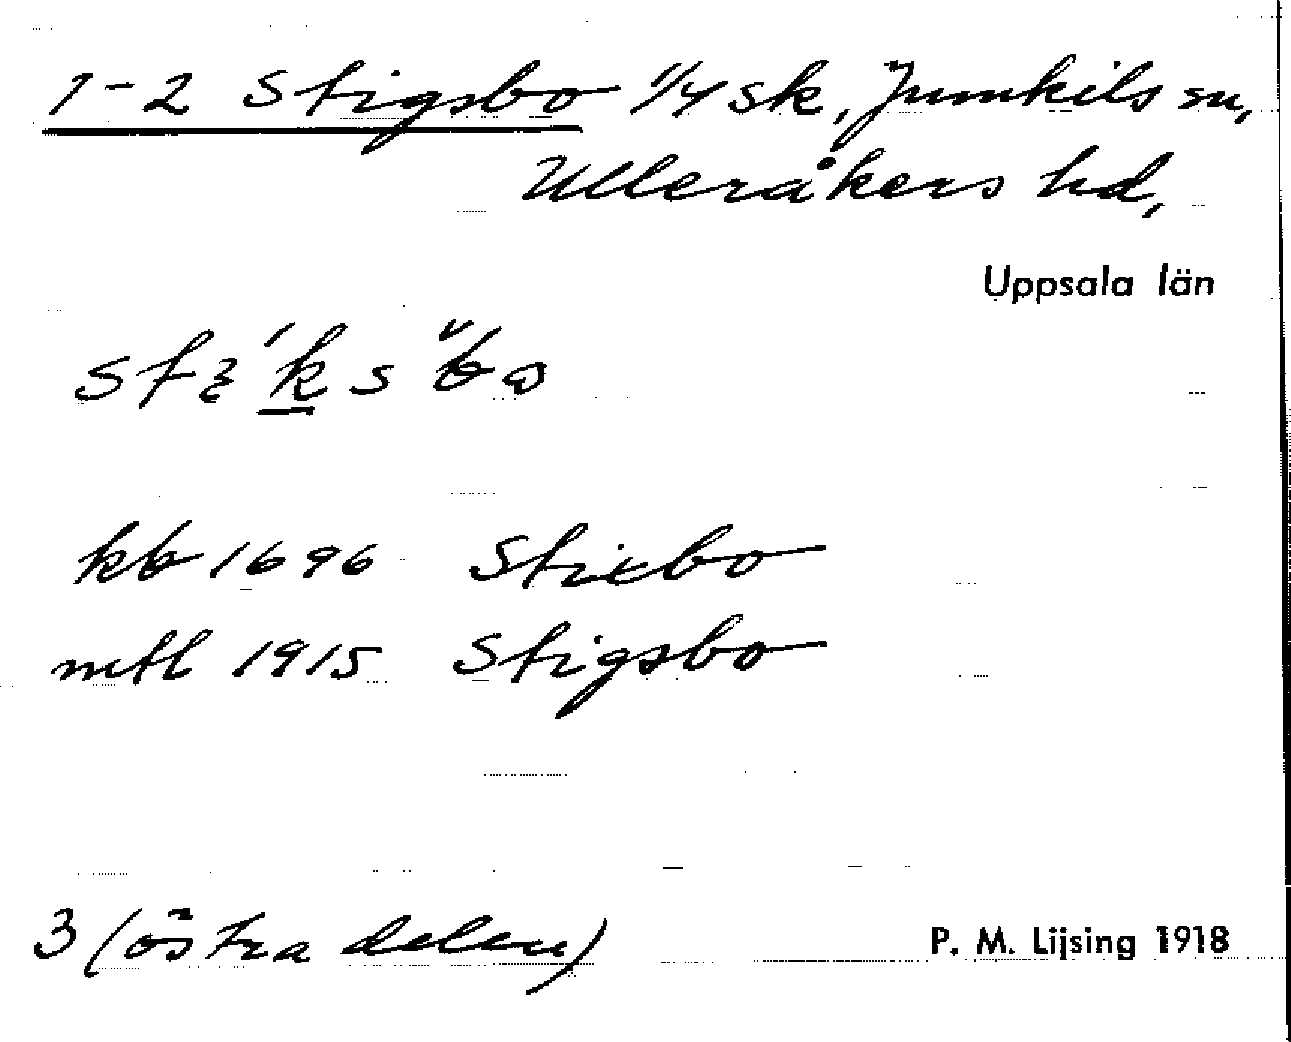 1-2 Stigsbo 1/4 sk, Jumkils sn,
Ulleråkers hd,
Uppsala län
kb 1696 Stixbo
mtl 1915 Stigsbo
3 (östra delen)
P. M. Lijsing 1918